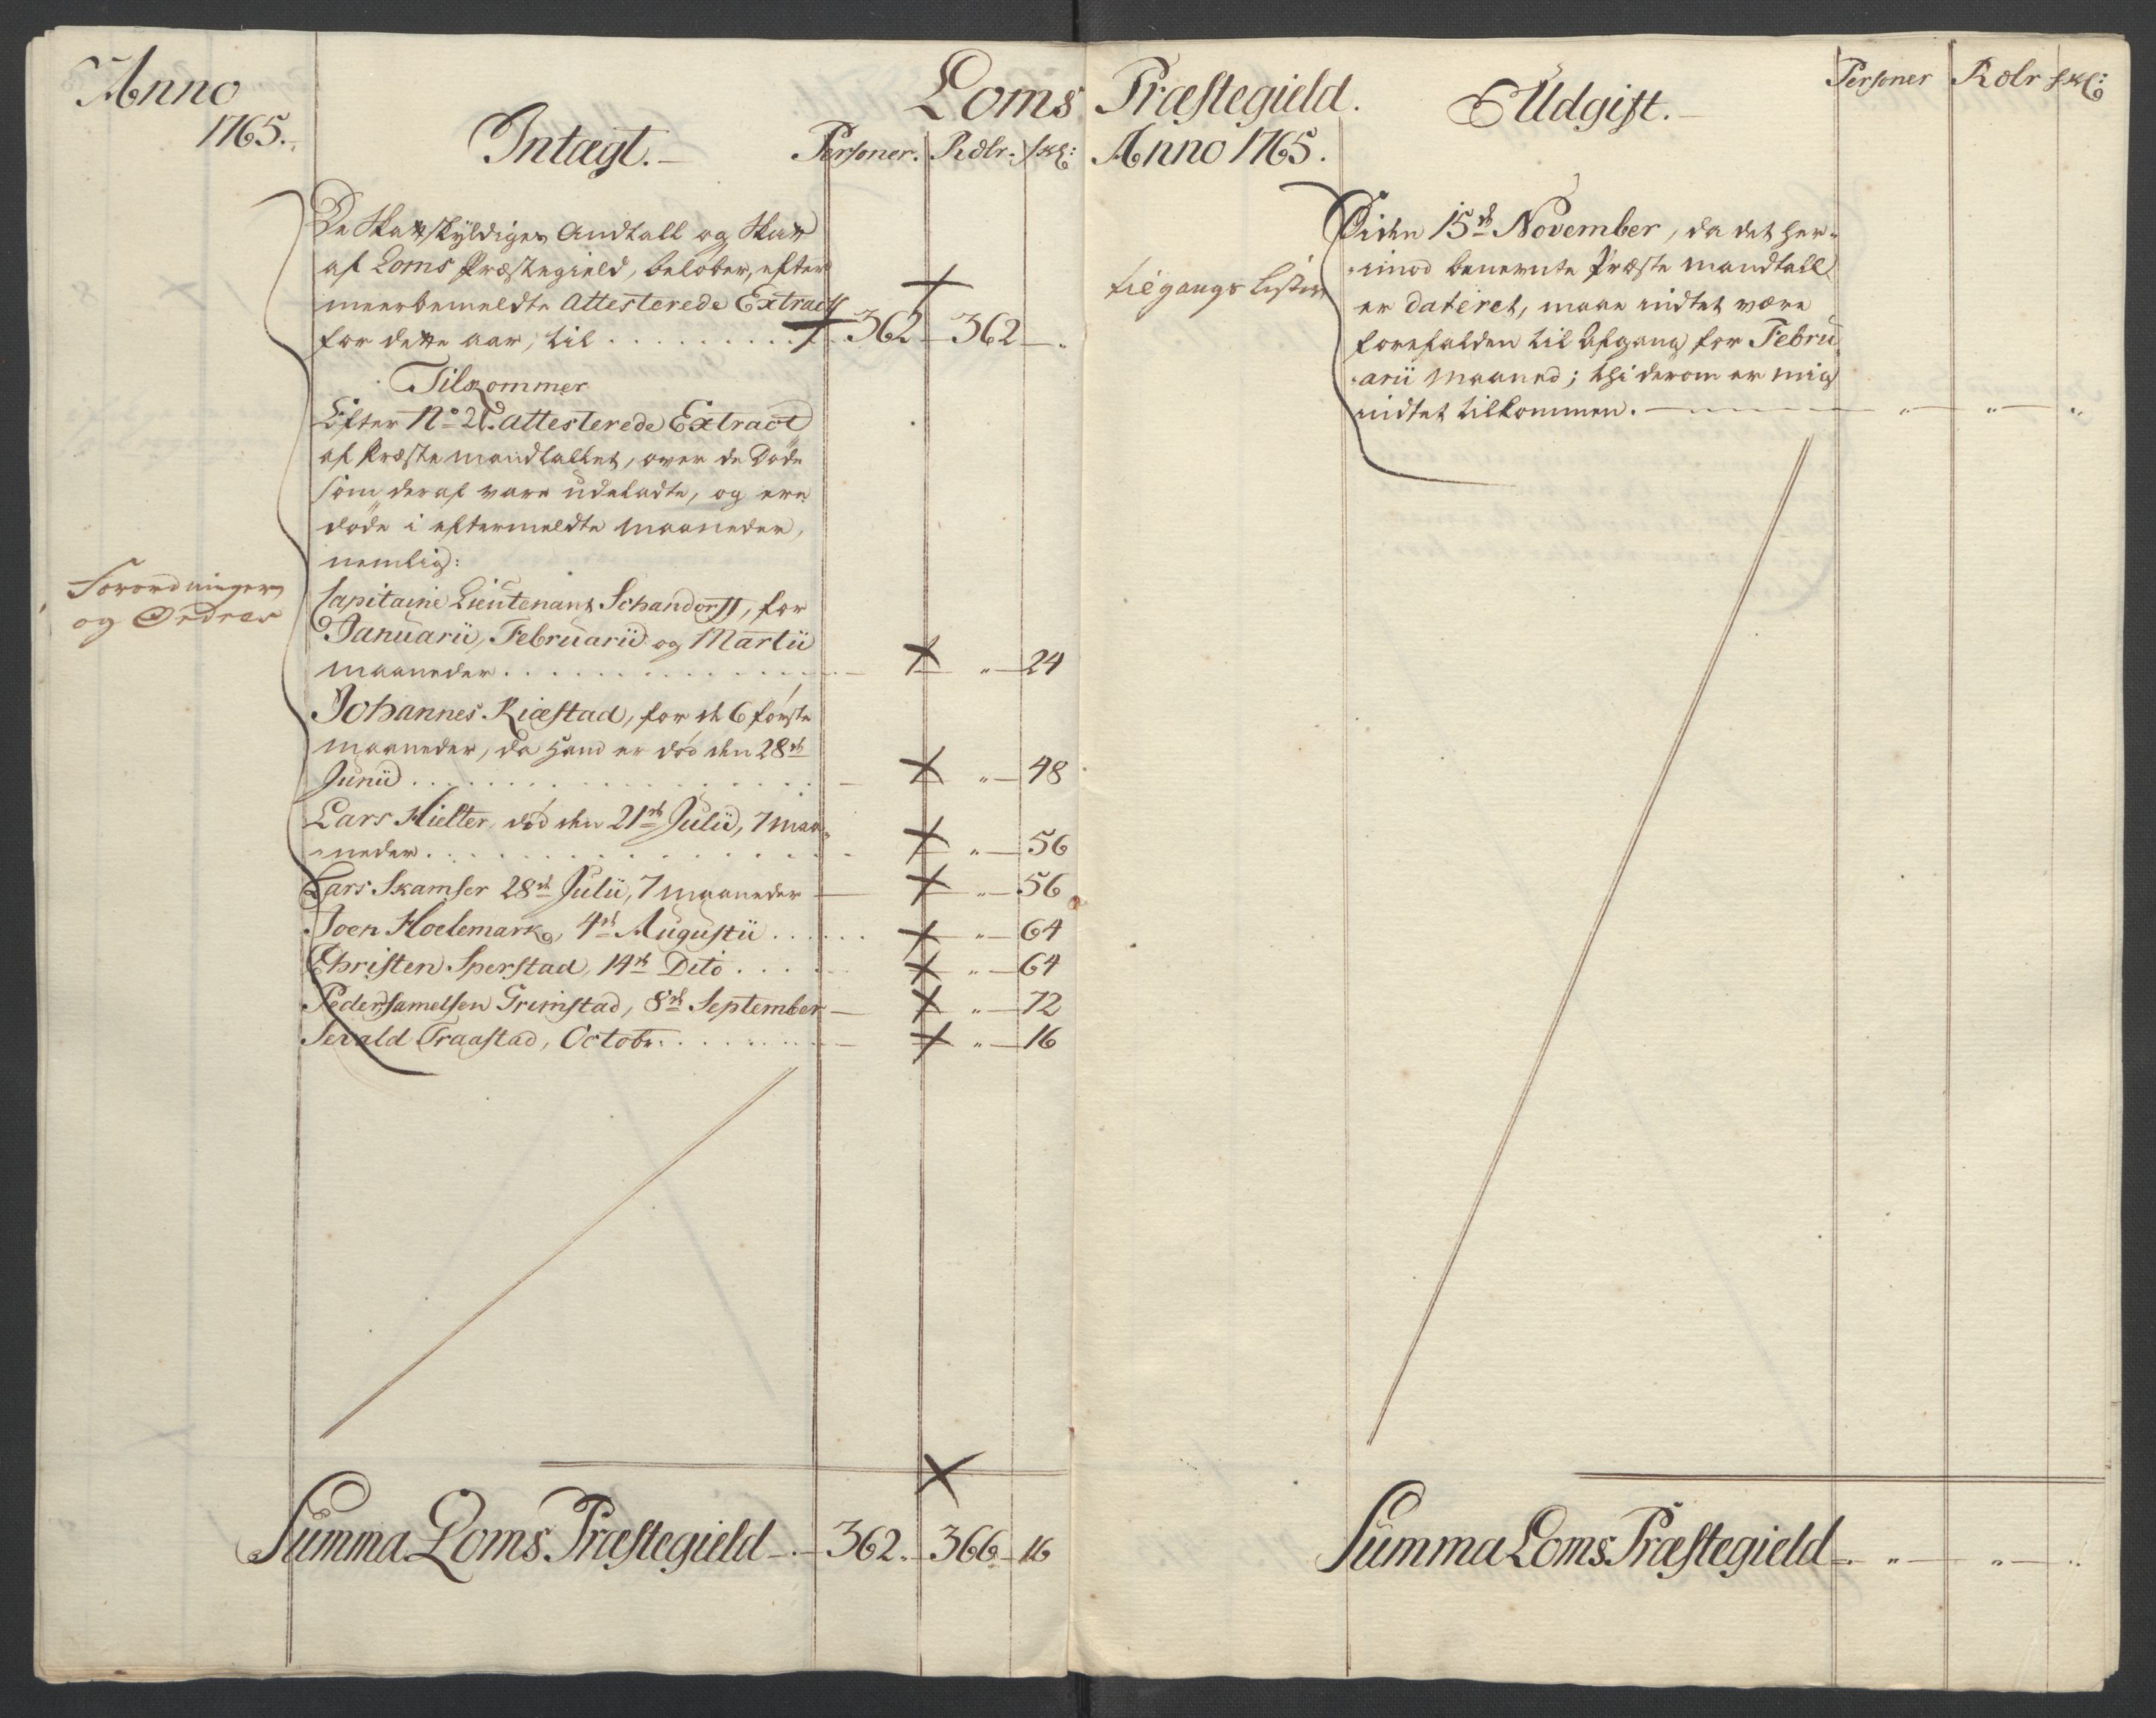 Anno
1765.
Loms
Intægt.
Personer. Rdlr. skl:
De Skattskyldiges Andtall og Skatt
af Loms Præstegield, beløber, efter
meerbemeldte Attesterede Extract
for dette aar, til . . . . . . . . . 362 — 362 — „
Tilkommer
Efter No 21. attesterede Extract
af Præste mandtallet, over de Døde
som deraf vare udeladte, og ere
døde i eftermeldte maaneder,
nemlig:
Forordninger
og Ordres
Capitaine Lieutenant Schandorff, for
Januarii, Februarii og Martii
maaneder . . . . . . . . . . „ — 24
Johannes Kiæstad, for de 6 første
maaneder, da hand er død den 28de
Junii . . . . . . . . . . „ — 48
Lars Hielter, død den 21de Julii, 7 maa-
neder . . . . . . . . . . „ — 56
Lars Skamser 28de Julii, 7 maaneder — „ — 56
Joen Hoelemark, 4de Augustii . . . . . . „ — 64
Christen Sperstad, 14de Dito . . . . „ — 64
Peder Samelsen Grimstad, 8de September — „ — 72
Traastad, Octobr: . . . . . . . . „ — 16
Summa Loms Præstegield — 362. — 366 — 16
Præstegield.
Anno 1765.
Udgift.
Personer Rdlr skl:
Siden 15de November, da det her-
imod benevnte Præste mandtall
er dateret, maae indtet være
forefalden til Afgang for Febru-
arii Maaned; thi derom er mig
indtet tilkommen. — „ — „ — „
Lister
Summa Loms Præstegield — „ — „ — „